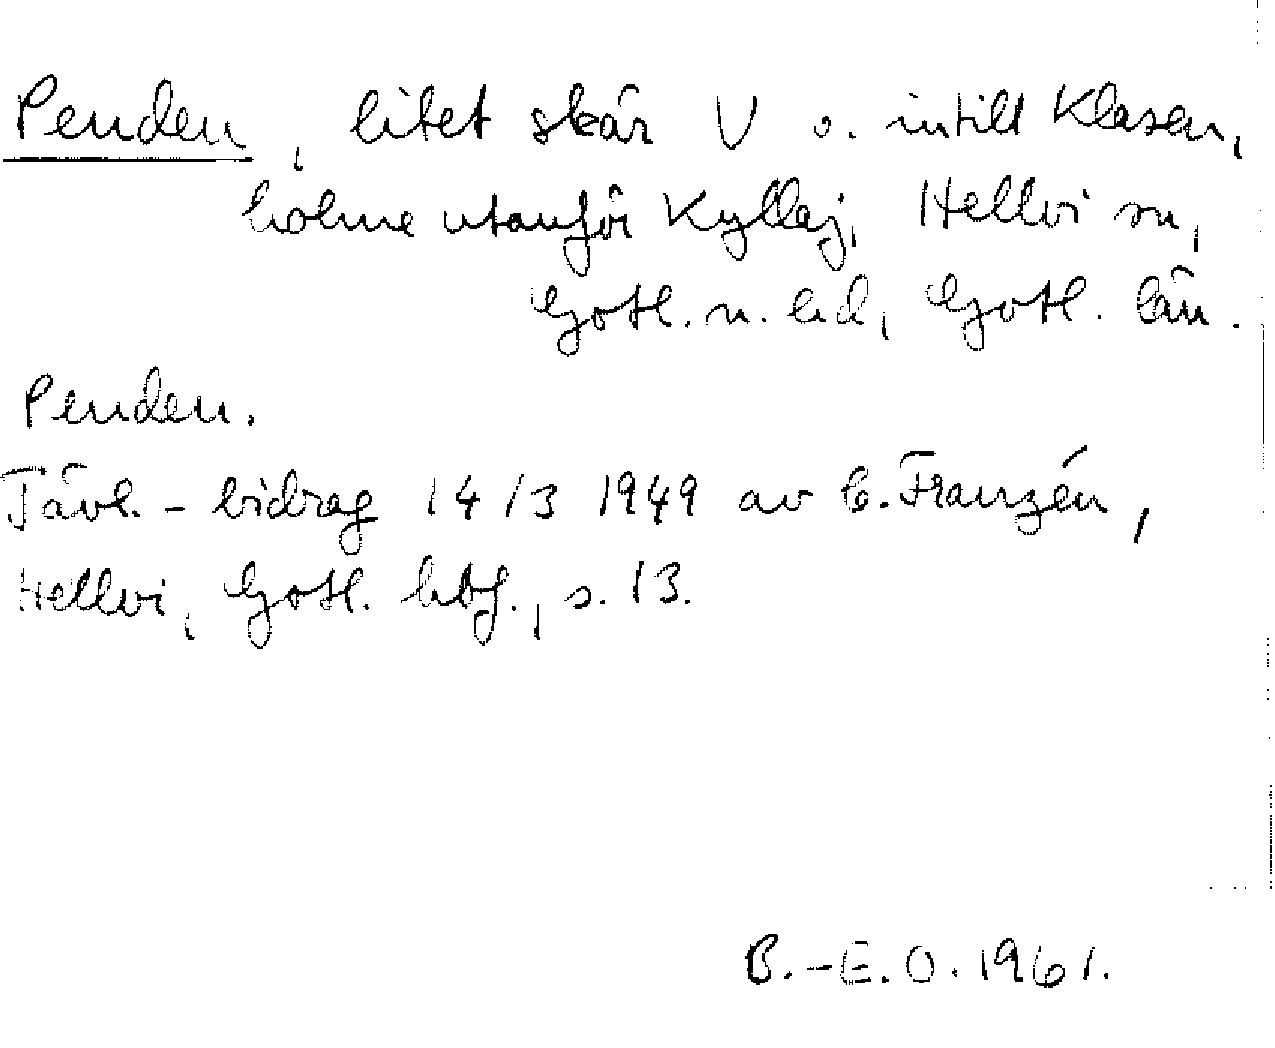 Penden, litet skär V o. intill Klasen,
holme utanför Kyllaj, Hellvi sn,
Gotl. n. hd, Gotl. län.
Penden.
Tävl.-bidrag 14/3 1949 av C. Franzén,
Hellvi, Gotl. hbf., s. 13.
B.-E. O. 1961.